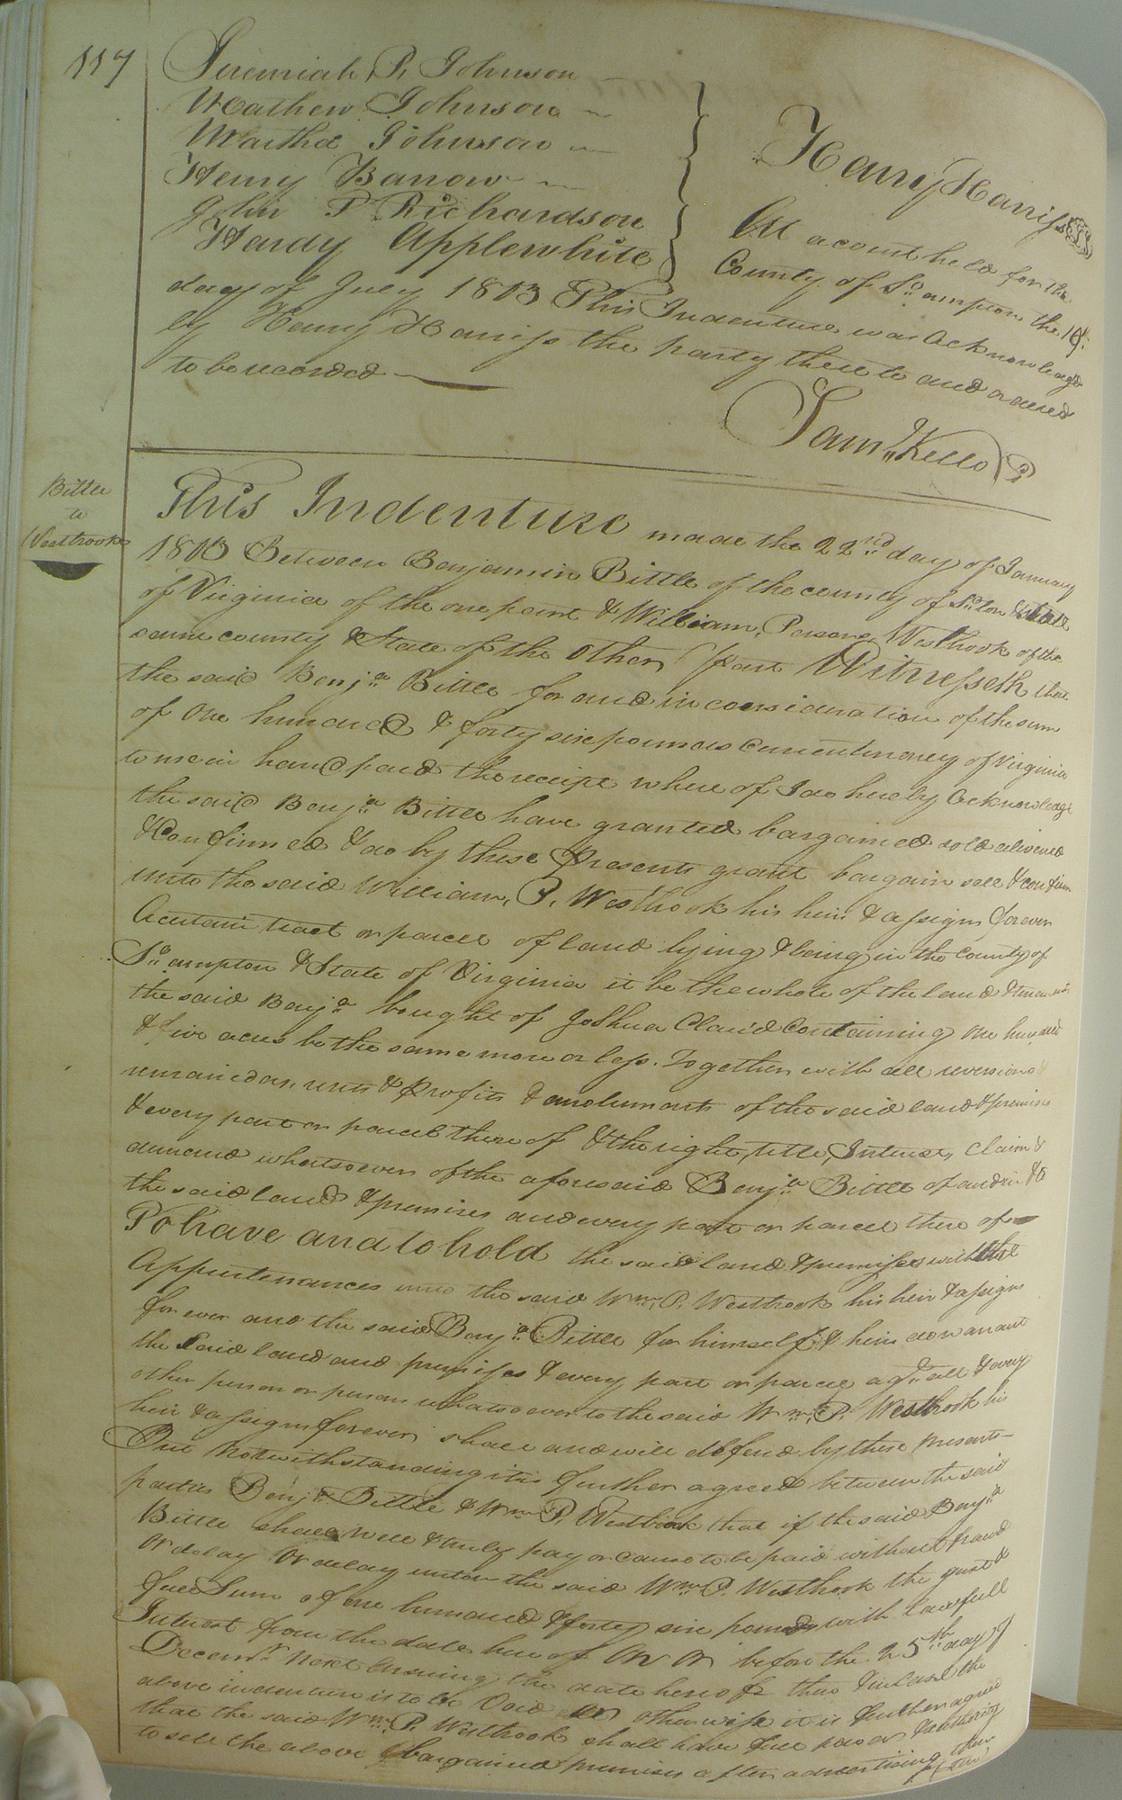 117
Jeremiah P. Johnson
Mathew Johnson
Martha Johnson
Henry Barrow
John P Richardson
Hardy Applewhite
Harry Harriss
At a count held for the
County of So. ampton the 19
day of July 1813 This Indenture was Acknowledgd
by Harry Harriss the party thereto and ordered
to be recorded
Saml. Kello
Bittle
to
Westbrook
This Indenture made the 22nd day of January
1813 Between Benjamin Bittle of the county of & State
of Virginia of the one part & William Parsons Westbrook of the
same county & State of the other part Witnesseth that
the said Benja Bittle for and in consideration of the sum
of One hundred & forty six pounds Current money of Virginia
to me in hand paid the receipt where of I do hereby Acknowledge
the said Benja Bittle have granted bargained sold alivered
& Confirmed & do by these Presents grant bargain sell & confirm
unto the said William P. Westbrook his heirs & assigns forever
A certain tract or parcel of land lying & being in the County of
So. ampton & State of Virginia it be the whole of the land &
the said Benja bought of Joshua Claud Containing One hundred
& five acres be the same more or less. Together with all reversions &
remainders, rents & Profits & emoluments of the said land & premises
& every part or parcel there of & the right, title, Interest, Claim &
demand whatsoever of the aforesaid Benja Bittle of and in & to
the said land & premises and every part or parcel there of
To have and to hold the said land & premises with the
Appurtenances unto the said Wm. P. Westbrook his heirs & assigns
for ever and the said Benja Bittle for himself & heirs do warrant
the said land and premises & every part or parcel agst all & every
other person or persons whatsoever to the said Wm. P. Westbrook his
heirs & assigns forever, shall and will defend by these Presents
But Notwithstanding it is further agreed between the said
parties Benja Bittle & Wm P. Westbrook that if the said Benja
Bittle shall well & truly pay or cause to be paid without fraud
Or delay Or delay unto the said Wm P. Westbrook the just &
full Sum of one hundred & forty six pounds with lawfull
Interest from the date here of On Or before the 25th day of
Decemr. Next Ensuing the date hereof then & in case the
above indenture is to be Void or otherwise it is further agreed
that the said Wm. P. Westbrook shall have full power & authority
to sell the above bargained premises after advertising